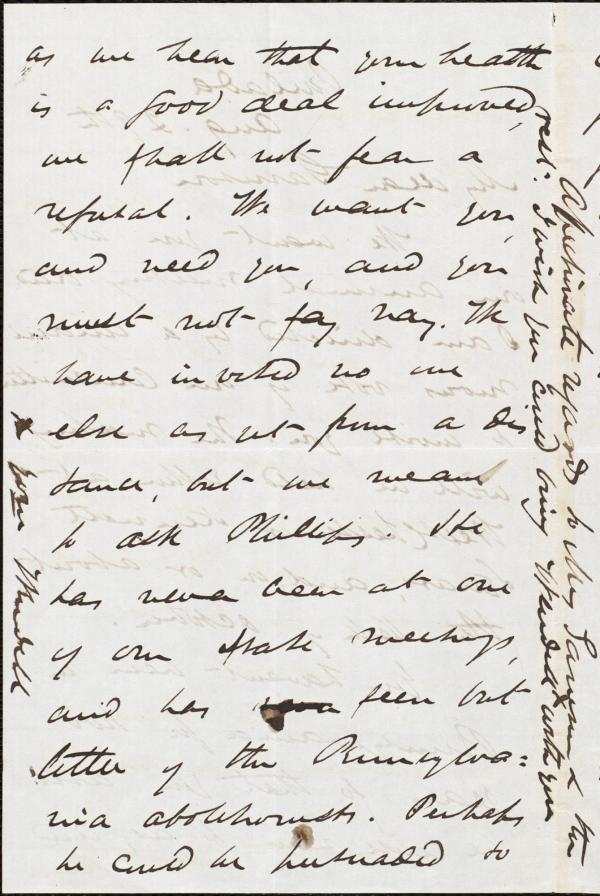 as we hear that your health
is a good deal improved,
we shall not fear a
refusal. We want you,
and need you, and you
must not say nay. We
have invited no one
else as yet from a dis
tance, but we mean
to ask Phillips. He
has never been at one
of our State meetings,
and has seen but
little of the Pennsylva=
nia abolitionists. Perhaps
he could be persuaded to
Affectionate regards to Mrs Garrison & the
rest: I wish you could bring Wendell with you
your Wendell